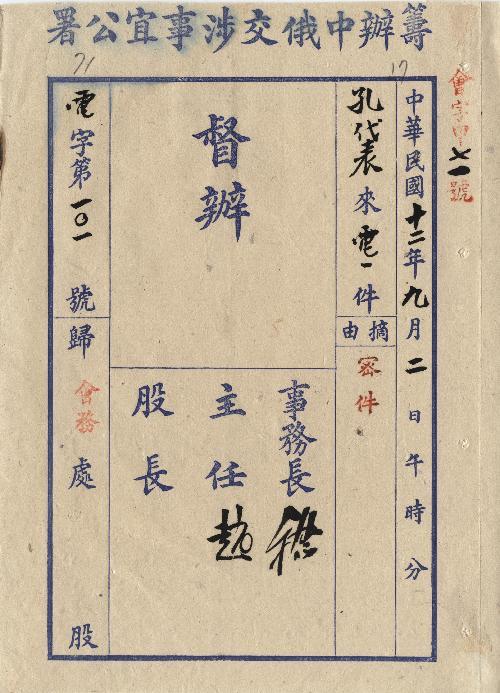 籌辦中俄交涉事宜公署
17
71
會字甲七一號
中華民國十二年九月二日午時分
孔代表來電一件
摘由
密件
督辦
事務長
主任 趙
股長
電字第一〇一號
歸會務處股